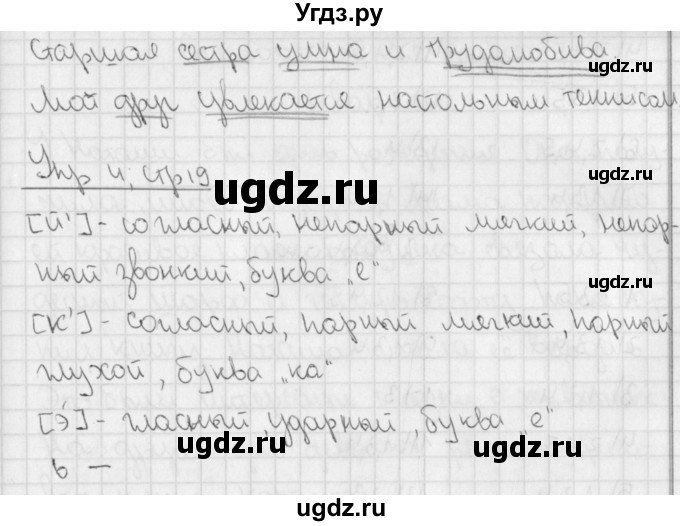 Угдз.ру
Старшая сестра умна и трудолюбива.
ugdz.ru
Мой друг увлекается настольным теннисом
ugdz.ru
ugdz.ru
Упр 4, стр 19
ugdz.ru
[й'] - согласный, непарный мягкий, непар-
ный звонкий, буква „е“
ugdz.ru
[к'] - согласный, парный мягкий, парный
ugdz.ru
глухой, буква „ка“
[э́] - гласный, ударный, буква „е“
ugdz.ru
ugdz.ru
ь —
ugdz.ru